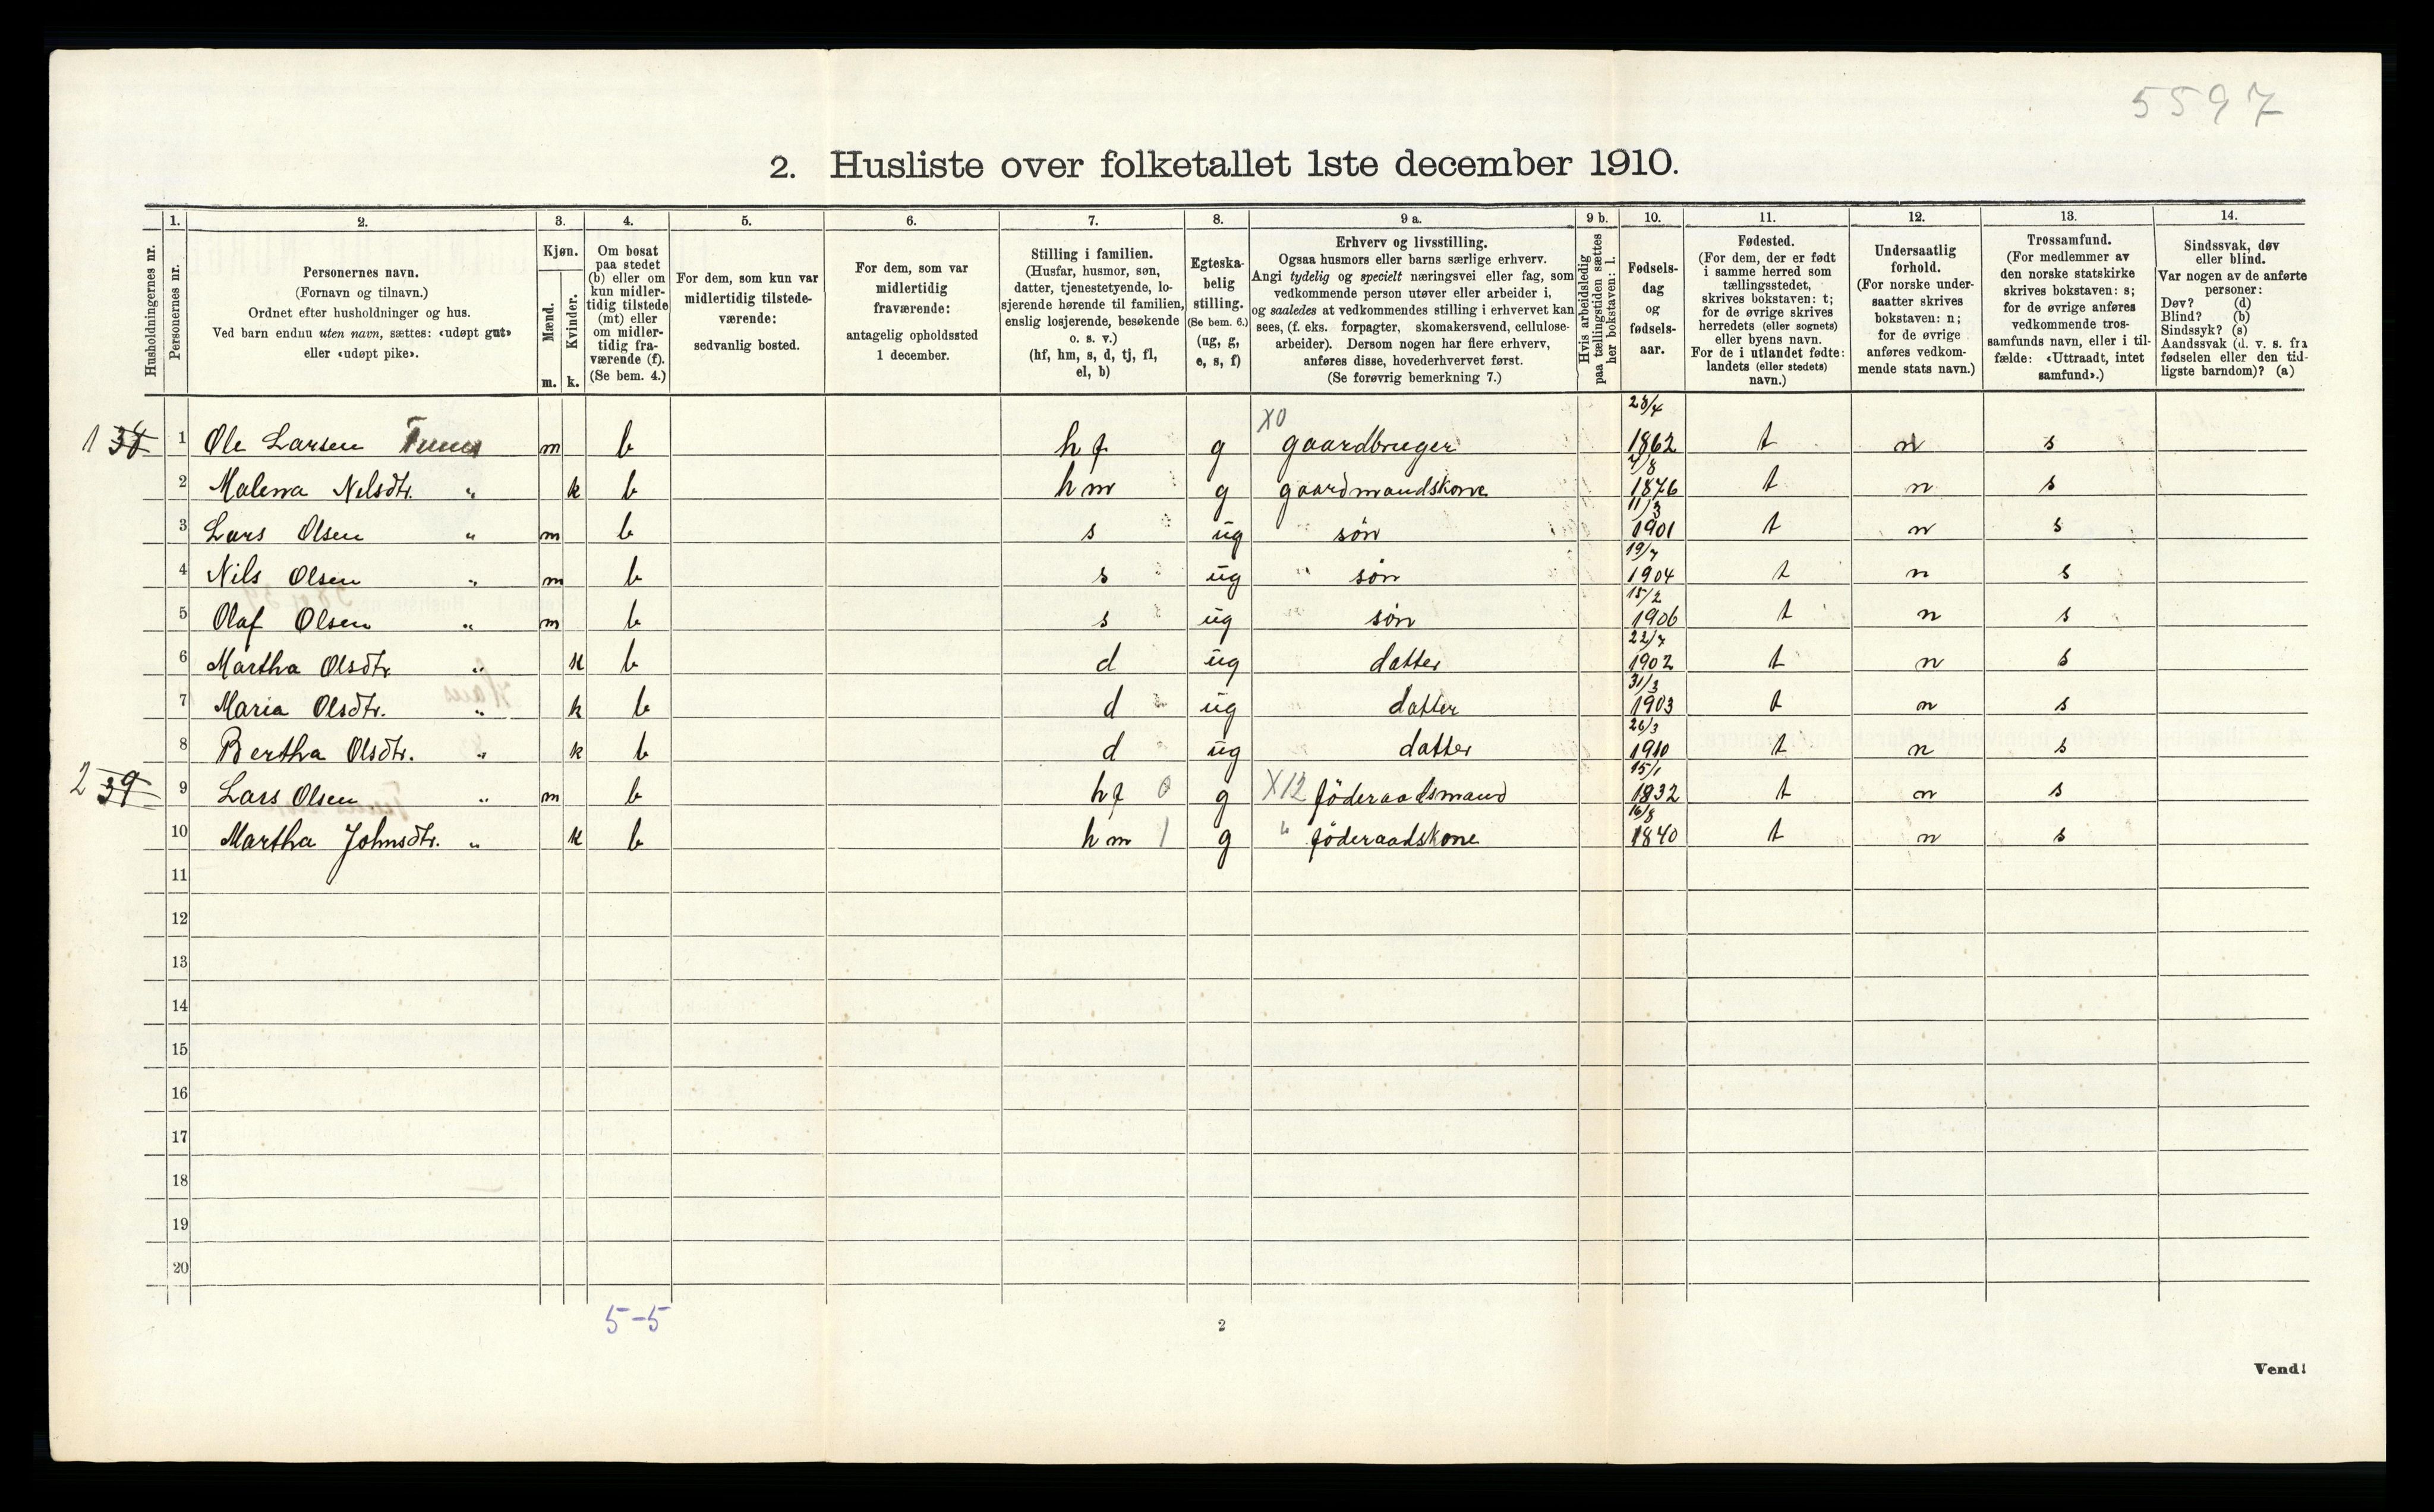 5597
2. Husliste over folketallet 1ste december 1910.
Husholdningernes nr.
1.
Personernes nr.
2.
Personernes navn.
(Fornavn og tilnavn.)
Ordnet efter husholdninger og hus.
Ved barn endnu uten navn, sættes: «udøpt gut»
eller «udøpt pike».
3.
Kjøn.
Mænd.
Kvinder.
m. k.
4.
Om bosat
paa stedet
(b) eller om
kun midler-
tidig tilstede
(mt) eller
om midler-
tidig fra-
værende (f).
(Se bem. 4.)
5.
For dem, som kun var
midlertidig tilstede-
værende:
sedvanlig bosted.
6.
For dem, som var
midlertidig
fraværende:
antagelig opholdssted
1 december.
7.
Stilling i familien.
(Husfar, husmor, søn,
datter, tjenestetyende, lo-
sjerende hørende til familien,
enslig losjerende, besøkende
o. s. v.)
(hf, hm, s, d, tj, fl,
el, b)
8.
Egteska-
belig
stilling.
(Se bem. 6.)
(ug, g,
e, s, f)
9 a.
Erhverv og livsstilling.
Ogsaa husmors eller barns særlige erhverv.
Angi tydelig og specielt næringsvei eller fag, som
vedkommende person utøver eller arbeider i,
og saaledes at vedkommendes stilling i erhvervet kan
sees, (f. eks. forpagter, skomakersvend, cellulose-
arbeider). Dersom nogen har flere erhverv,
anføres disse, hovederhvervet først.
(Se forøvrig bemerkning 7.)
9 b.
Hvis arbeidsledig
paa tællingstiden sættes
her bokstaven: l.
10.
Fødsels-
dag
og
fødsels-
aar.
11.
Fødested.
(For dem, der er født
i samme herred som
tællingsstedet,
skrives bokstaven: t;
for de øvrige skrives
herredets (eller sognets)
eller byens navn.
For de i utlandet fødte:
landets (eller stedets)
navn.)
12.
Undersaatlig
forhold.
(For norske under-
saatter skrives
bokstaven: n;
for de øvrige
anføres vedkom-
mende stats navn.)
13.
Trossamfund.
(For medlemmer av
den norske statskirke
skrives bokstaven: s;
for de øvrige anføres
vedkommende tros-
samfunds navn, eller i til-
fælde: «Uttraadt, intet
samfund».)
14.
Sindssvak, døv
eller blind.
Var nogen av de anførte
personer:
Døv? (d)
Blind? (b)
Sindssyk? (s)
Aandssvak (d. v. s. fra
fødselen eller den tid-
ligste barndom)? (a)
1 38 1 Ole Larsen m b hf g X0 gaardbruger 28/4 1862 t n s
2 Malena Nelsdtr. " k b hm g gaardmandskone 7/8 1876 t n s
3 Lars Olsen " m b s ug " søn 11/3 1901 t n s
4 Nils Olsen " m b s ug " søn 19/7 1904 t n s
5 Olaf Olsen " m b s ug søn 15/2 1906 t n s
6 Martha Olsdtr. " k b d ug datter 22/7 1902 t n s
7 Maria Olsdtr. " k b d ug datter 31/3 1903 t n s
8 Bertha Olsdtr. " k b d ug datter 26/3 1910 t n s
2 39 9 Lars Olsen " m b hf 0 g X12 föderaadsmand 15/1 1832 t n s
10 Martha Johnsdtr. " k b hm 1 g " föderaadskone 16/8 1840 t n s
11
12
13
14
15
16
17
18
19
20
5-5
2
Vend!